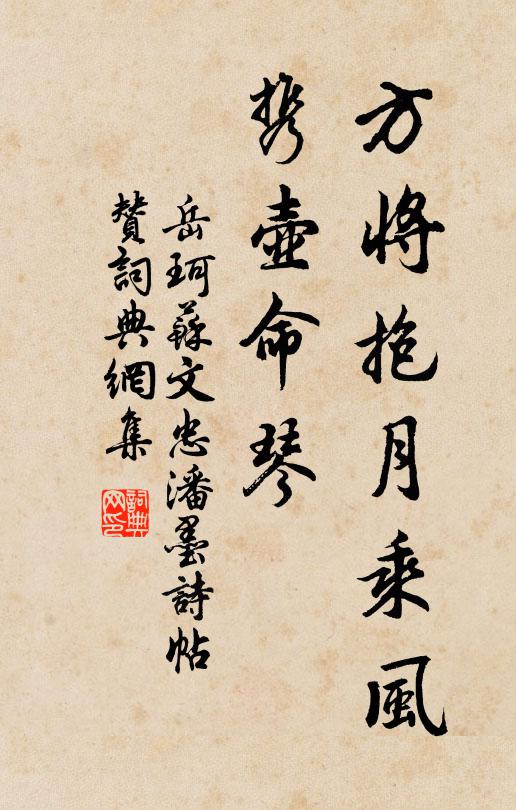 方將抱月乘風
携壺命琴
岳珂蘇文忠潘墨詩帖
贊詞典網集
詞典網印